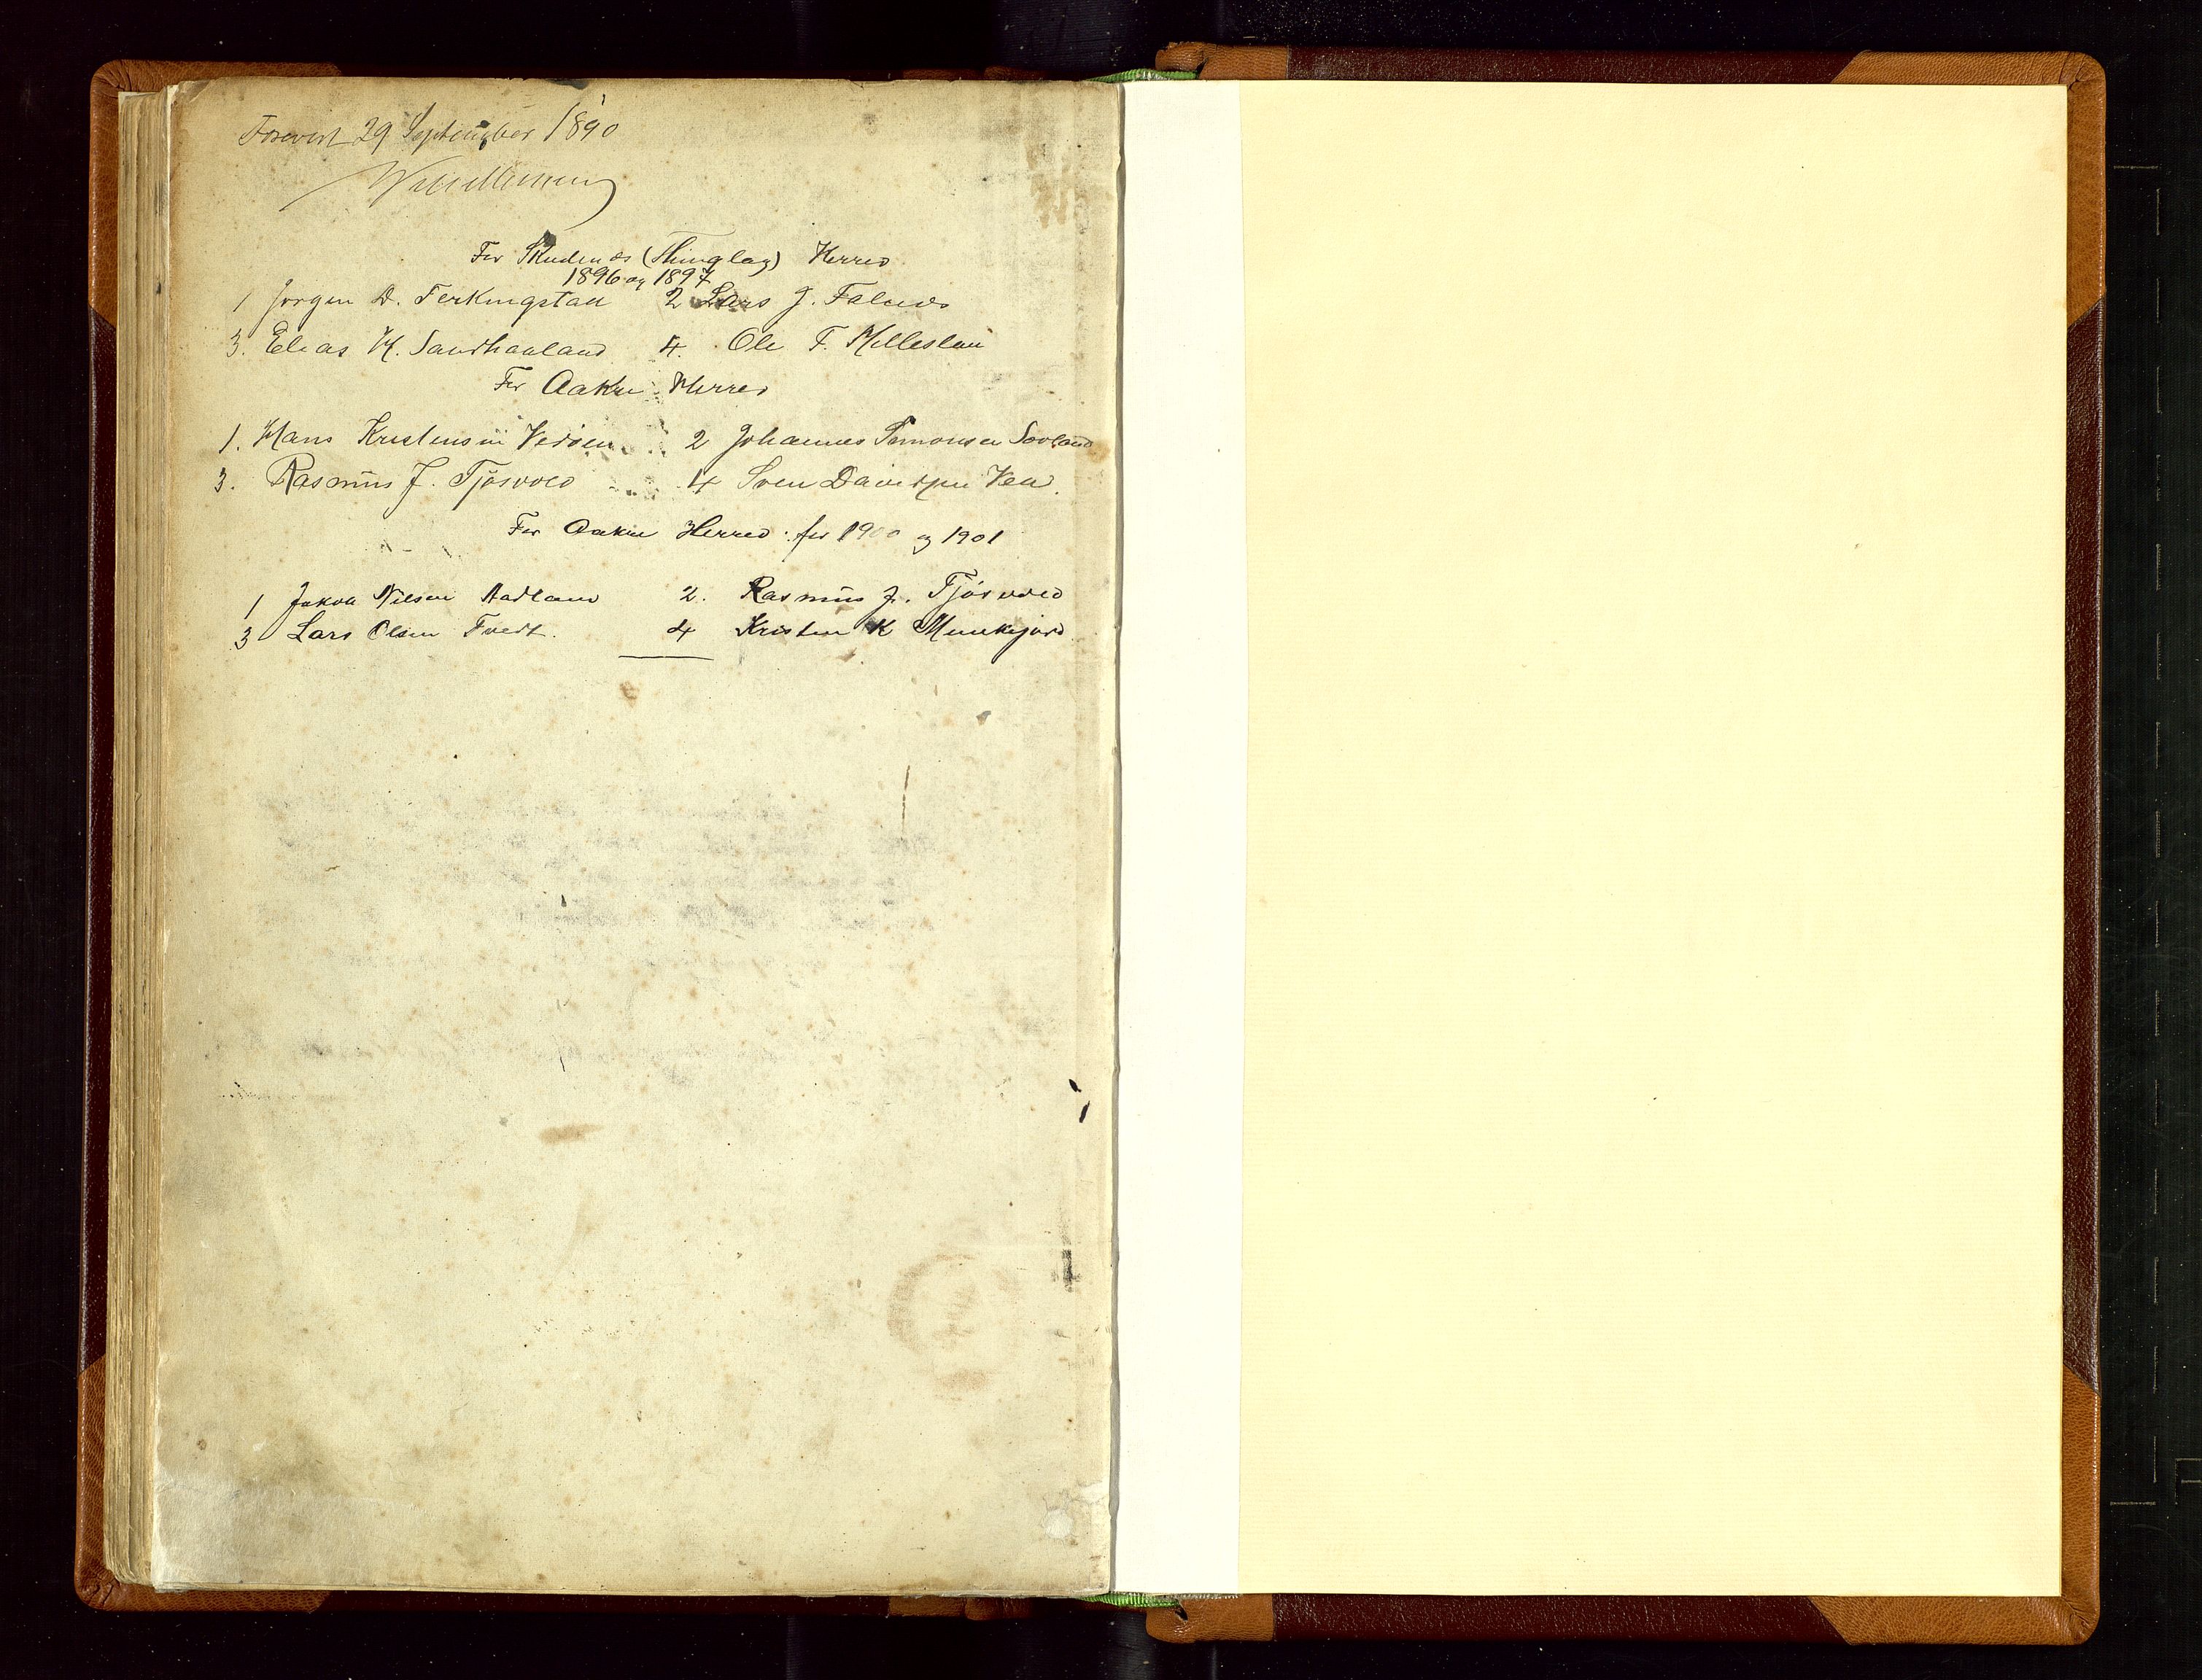 Forevist 29 September 1890
For Skudenæs (Thinglag) Herred
1896 og 1897
1 Jørgen D. Ferkingstad 2 Lars J. Falnæs
3. Elias H. Sandhaaland 4. Ole F. Milleslan
For Aakre Herred
1. Hans Kristensen Vedøen 2 Johannes Simonsen Søvland
3. Rasmus J. Tjøsvold 4 Sven Davidsen Vea.
For Aakre Herred for 1900 og 1901
1 Jakob Nilsen Aadland 2. Rasmus J. Tjøsvold
3 Lars Olsen Tvedt. 4 Kristen K Munkejord